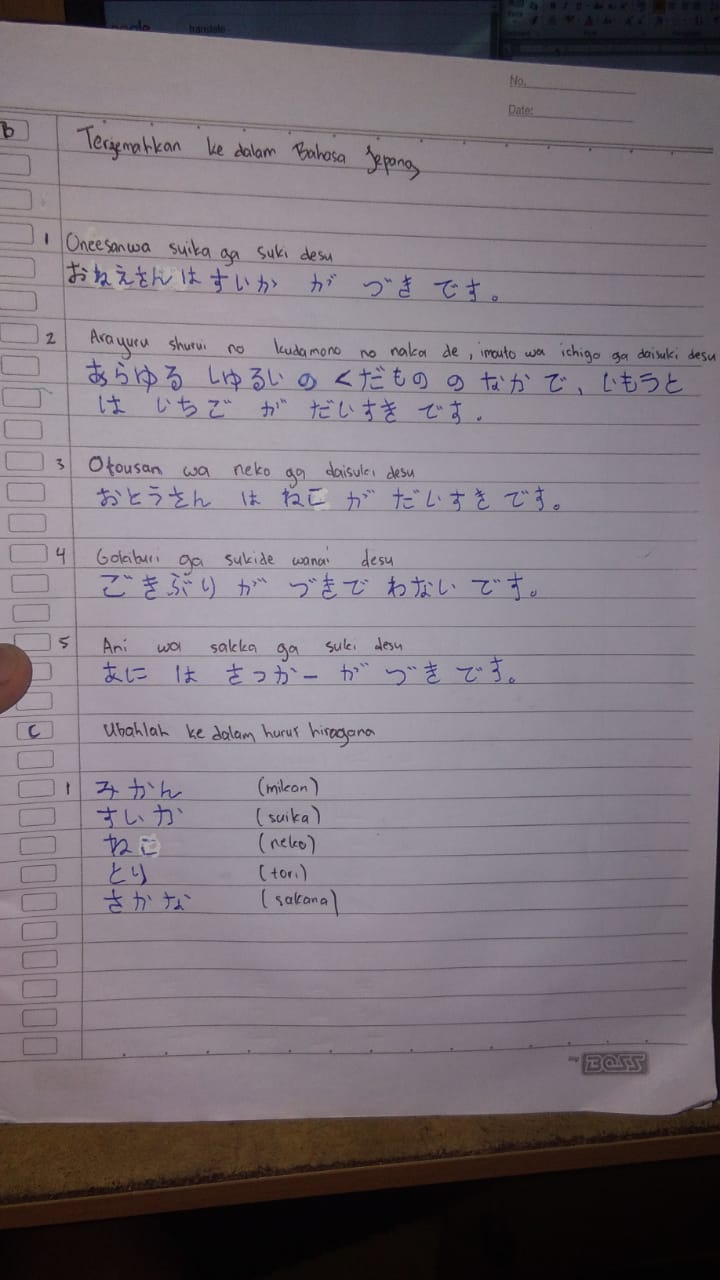 translate
No.
Date:
b
Terjemahkan ke dalam Bahasa Jepang
1 Oneesanwa suika ga suki desu
おねえさんはすいか が づき です。
2 Arayuru shurui no kudamono no naka de, imouto wa ichigo ga daisuki desu
あらゆる しゆるい の くだもの の なか で、いもうと
は いちご が だいすき です.
3 Otousan wa neko ga daisuki desu
おとうさん は ねこ が だいすき です。
4 Gokiburi ga sukide wanai desu
ごきぶり が づきで わない です。
5 Ani wa sakka ga suki desu
あに は さっかー が づき です。
C Ubahlah ke dalam huruf hiragana
1 みかん (mikan)
すいか (suika)
ねこ (neko)
とり (tori)
さかな (sakana)
my BOSS